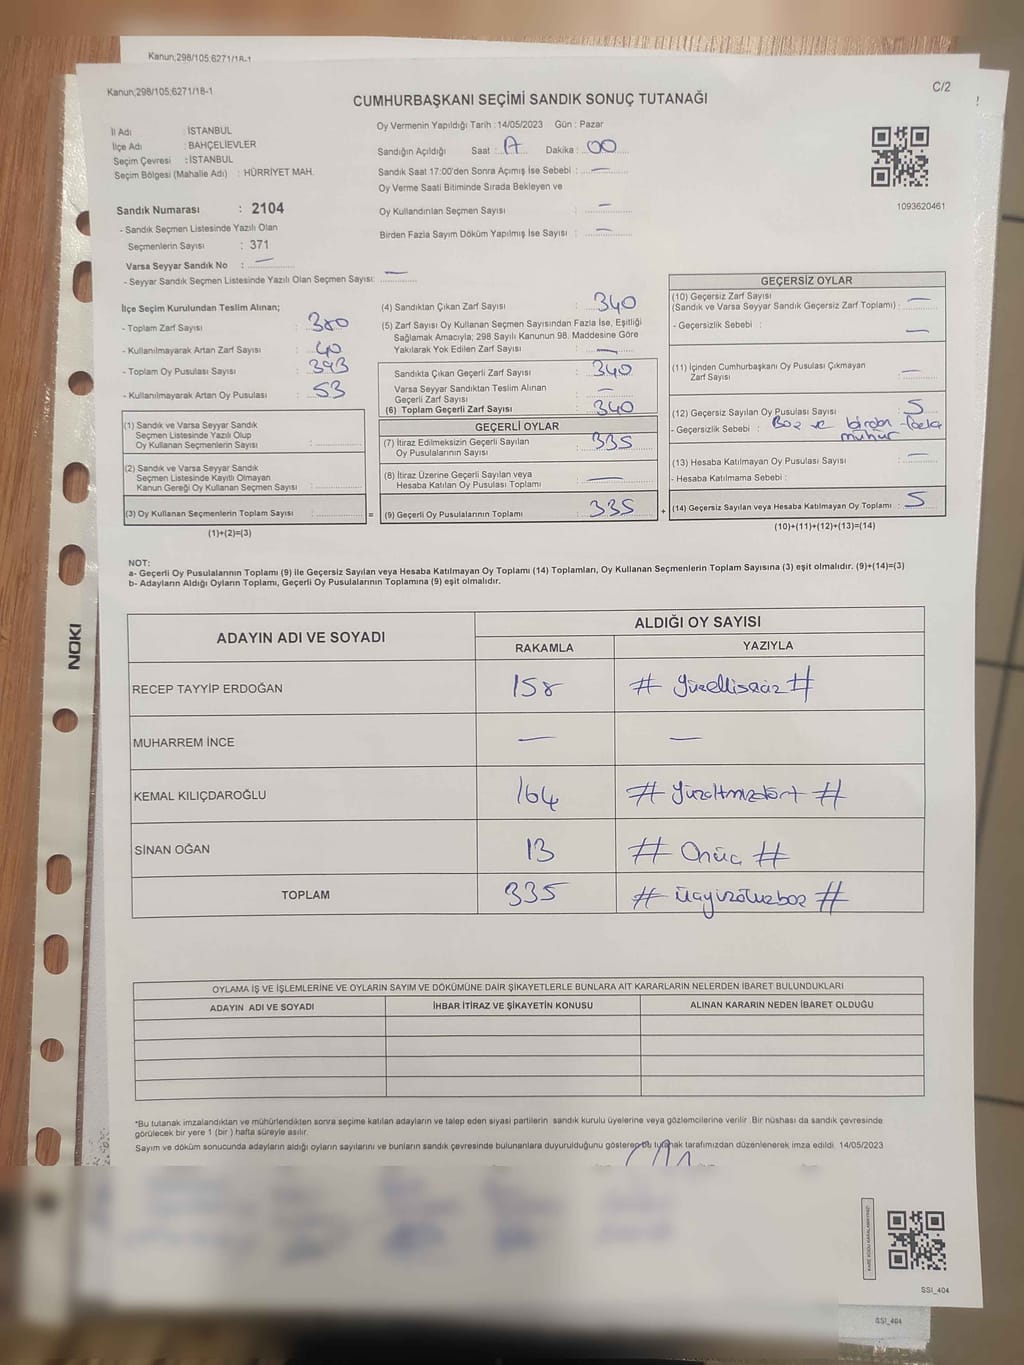 Kanun;298/105;6271/18-1
Kanun;298/105;6271/18-1
C/2
CUMHURBAŞKANI SEÇİMİ SANDIK SONUÇ TUTANAĞI
İl Adı : İSTANBUL
İlçe Adı : BAHÇELİEVLER
Seçim Çevresi : İSTANBUL
Seçim Bölgesi (Mahalle Adı) : HÜRRİYET MAH.
Oy Vermenin Yapıldığı Tarih : 14/05/2023 Gün : Pazar
Sandığın Açıldığı Saat : Dakika : 00
Sandık Saat 17:00'den Sonra Açımış İse Sebebi : —
Oy Verme Saati Bitiminde Sırada Bekleyen ve
Oy Kullandırılan Seçmen Sayısı : —
Birden Fazla Sayım Döküm Yapılmış İse Sayısı : —
1093620461
Sandık Numarası : 2104
- Sandık Seçmen Listesinde Yazılı Olan
Seçmenlerin Sayısı : 371
Varsa Seyyar Sandık No : —
- Seyyar Sandık Seçmen Listesinde Yazılı Olan Seçmen Sayısı: —
İlçe Seçim Kurulundan Teslim Alınan;
- Toplam Zarf Sayısı : 380
- Kullanılmayarak Artan Zarf Sayısı : 40
- Toplam Oy Pusulası Sayısı : 393
- Kullanılmayarak Artan Oy Pusulası : 53
(1) Sandık ve Varsa Seyyar Sandık
Seçmen Listesinde Yazılı Olup
Oy Kullanan Seçmenlerin Sayısı :
(2) Sandık ve Varsa Seyyar Sandık
Seçmen Listesinde Kayıtlı Olmayan
Kanun Gereği Oy Kullanan Seçmen Sayısı :
(3) Oy Kullanan Seçmenlerin Toplam Sayısı : =
(1)+(2)=(3)
(4) Sandıktan Çıkan Zarf Sayısı : 340
(5) Zarf Sayısı Oy Kullanan Seçmen Sayısından Fazla İse, Eşitliği
Sağlamak Amacıyla; 298 Sayılı Kanunun 98. Maddesine Göre
Yakılarak Yok Edilen Zarf Sayısı : —
Sandıkta Çıkan Geçerli Zarf Sayısı : 340
Varsa Seyyar Sandıktan Teslim Alınan
Geçerli Zarf Sayısı : —
(6) Toplam Geçerli Zarf Sayısı : 340
GEÇERLİ OYLAR
(7) İtiraz Edilmeksizin Geçerli Sayılan
Oy Pusulalarının Sayısı : 335
(8) İtiraz Üzerine Geçerli Sayılan veya
Hesaba Katılan Oy Pusulası Toplamı : —
(9) Geçerli Oy Pusulalarının Toplamı : 335 +
GEÇERSİZ OYLAR
(10) Geçersiz Zarf Sayısı
(Sandık ve Varsa Seyyar Sandık Geçersiz Zarf Toplamı) : —
- Geçersizlik Sebebi : —
(11) İçinden Cumhurbaşkanı Oy Pusulası Çıkmayan
Zarf Sayısı : —
(12) Geçersiz Sayılan Oy Pusulası Sayısı : 5
- Geçersizlik Sebebi : Boş ve birden fazla
mühür
(13) Hesaba Katılmayan Oy Pusulası Sayısı : —
- Hesaba Katılmama Sebebi :
(14) Geçersiz Sayılan veya Hesaba Katılmayan Oy Toplamı : 5
(10)+(11)+(12)+(13)=(14)
NOT:
a- Geçerli Oy Pusulalarının Toplamı (9) ile Geçersiz Sayılan veya Hesaba Katılmayan Oy Toplamı (14) Toplamları, Oy Kullanan Seçmenlerin Toplam Sayısına (3) eşit olmalıdır. (9)+(14)=(3)
b- Adayların Aldığı Oyların Toplamı, Geçerli Oy Pusulalarının Toplamına (9) eşit olmalıdır.
ADAYIN ADI VE SOYADI
ALDIĞI OY SAYISI
RAKAMLA YAZIYLA
RECEP TAYYİP ERDOĞAN 158 # yüzellisekiz #
MUHARREM İNCE — —
KEMAL KILIÇDAROĞLU 164 # yüzaltmışdört #
SİNAN OĞAN 13 # Onüç #
TOPLAM 335 # üçyüzotuzbeş #
OYLAMA İŞ VE İŞLEMLERİNE VE OYLARIN SAYIM VE DÖKÜMÜNE DAİR ŞİKAYETLERLE BUNLARA AİT KARARLARIN NELERDEN İBARET BULUNDUKLARI
ADAYIN ADI VE SOYADI İHBAR İTİRAZ VE ŞİKAYETİN KONUSU ALINAN KARARIN NEDEN İBARET OLDUĞU
*Bu tutanak imzalandıktan ve mühürlendikten sonra seçime katılan adayların ve talep eden siyasi partilerin sandık kurulu üyelerine veya gözlemcilerine verilir. Bir nüshası da sandık çevresinde
görülecek bir yere 1 (bir ) hafta süreyle asılır.
Sayım ve döküm sonucunda adayların aldığı oyların sayılarını ve bunların sandık çevresinde bulunanlara duyurulduğunu gösteren bu tutanak tarafımızdan düzenlenerek imza edildi. 14/05/2023
NOKI
SSİ_404
SSİ_404